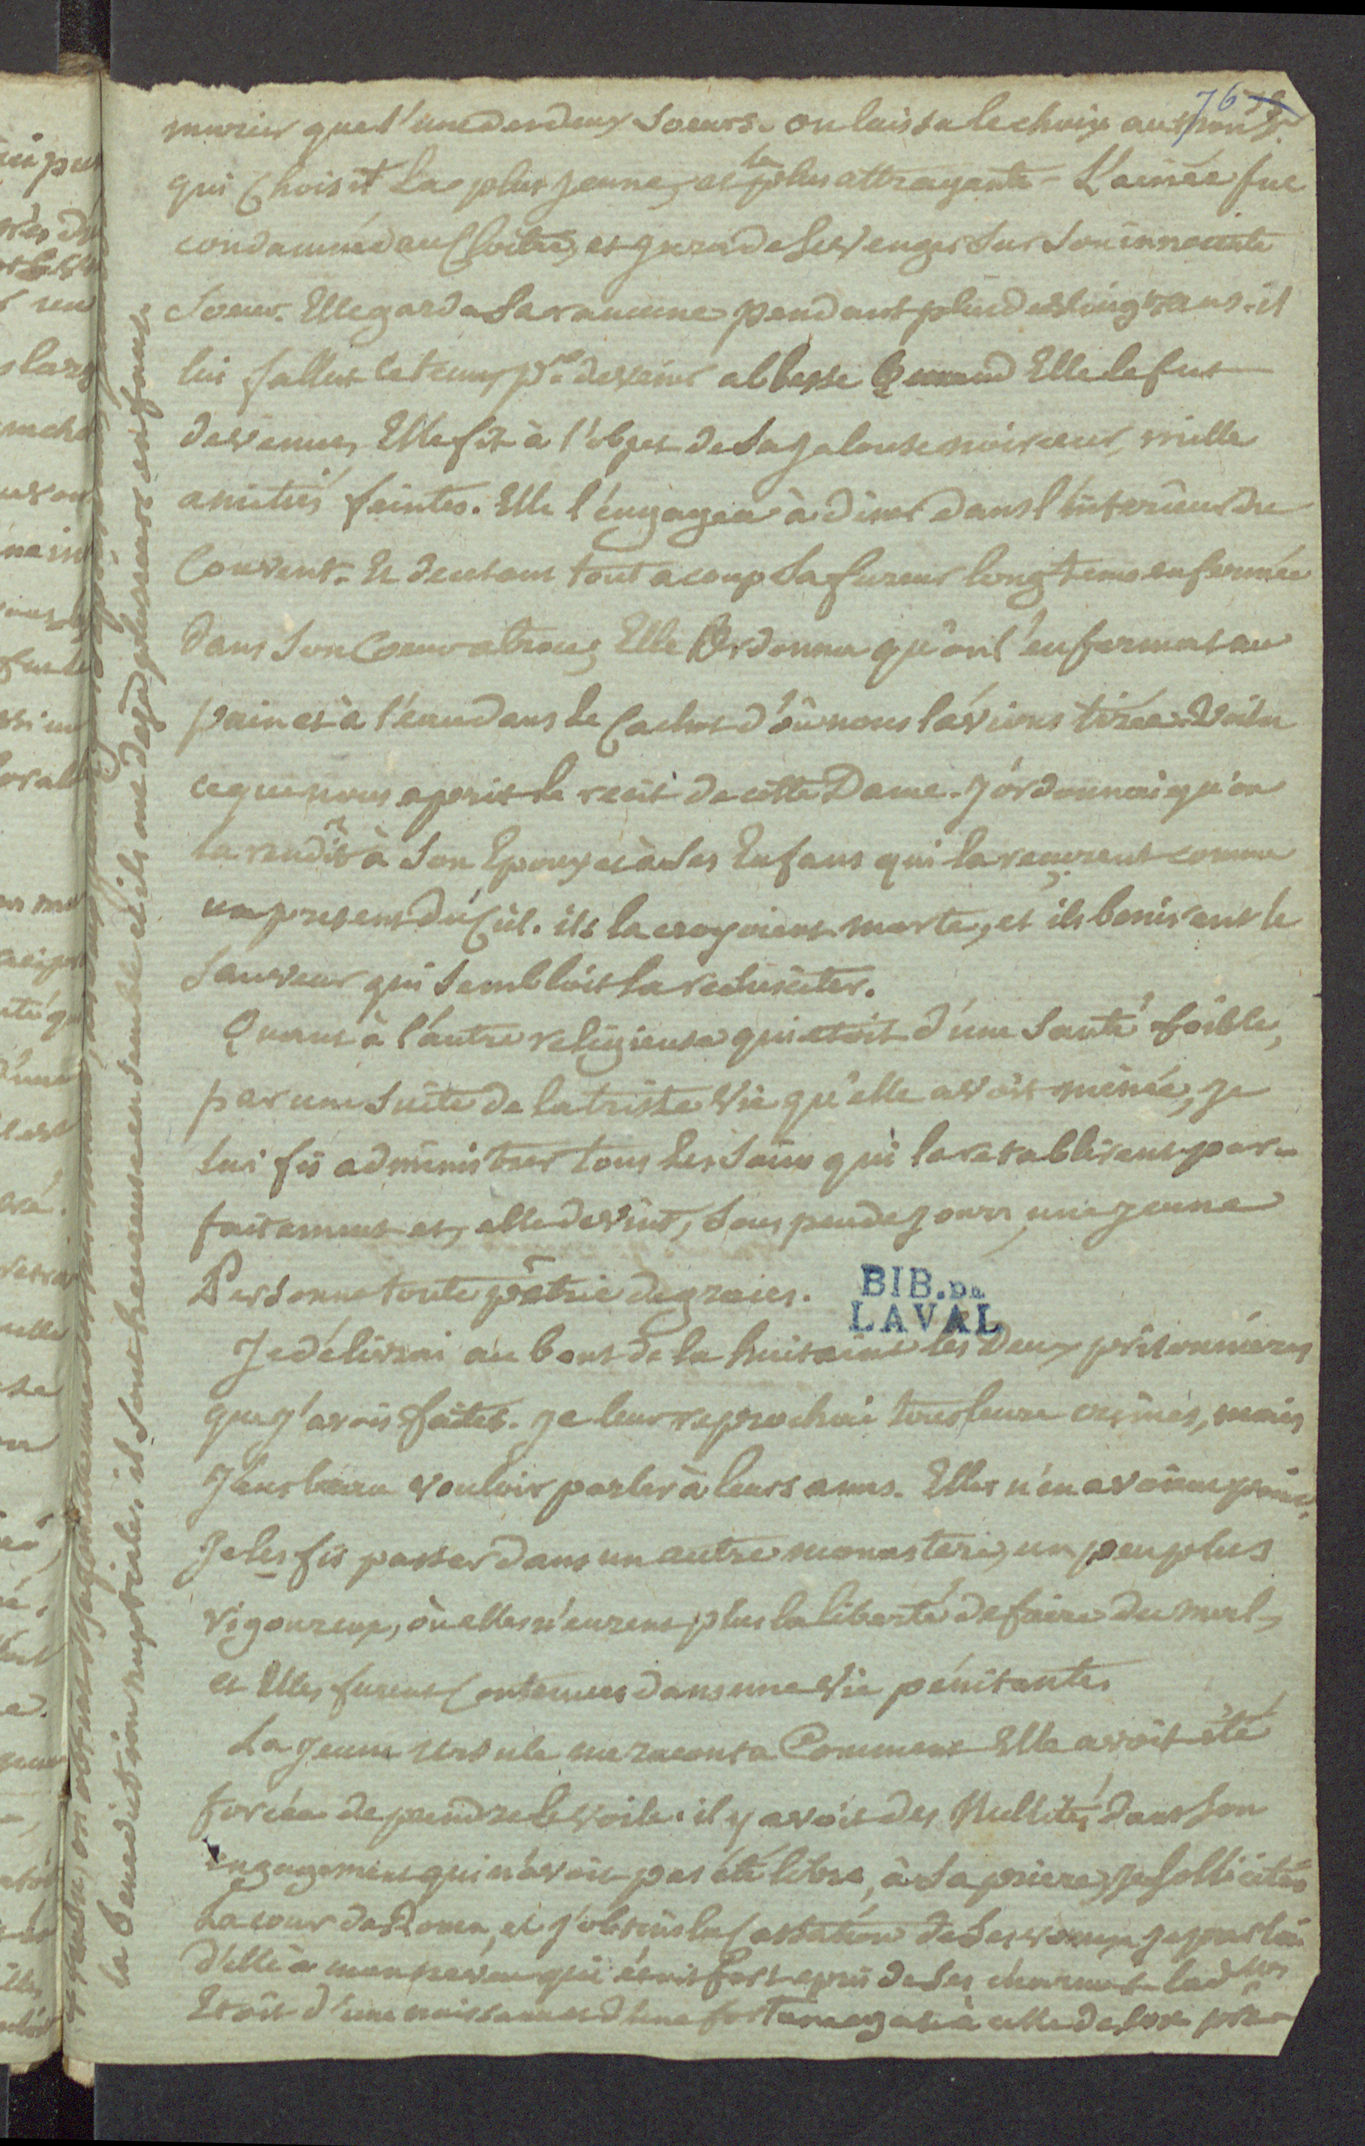 76
marier que l'une des deux Soeurs. on laissa le choix au
qui Choisit La plus jeune, et la plus attrayante. L'ainée fut
condamnée au Cloitre, et jura de se venger Sur Son innocente
Soeur. Elle garda Sa rancune pendant plus de vingt ans. il
lui fallut ce tems pr. devenir abbesse Quand Elle le fut
devenue, Elle fit à l'objet de Sa jalouse noirceur, mille
amitiés feintes. Elle l'éngagea à diner dans l'interieur du
Couvent. Et tout acoup Sa fureur longtems enfermée
dans Son Coeur atroce, Elle Ordonna qu'on l'enfermat au
pain et à l'éau dans le Cachot d'où nous l'avions tirée. Voila
ce que nous aprit le récit de cette Dame. J'ordonnai qu'on
la rendit à Son Epoux et à Ses Enfans qui la reçurent comme
un présent du Ciel. ils la croyoient morte, et ils benirent le
Sauveur qui Sembloit la resusciter.
Quant à l'autre religieuse qui etoit d'une Santé foible,
par une Suite de la triste vie qu'elle avoit menée, je
lui fis administrer tous les Soins qui la rétablirent par-
faitement et, elle devint, Sous peu de jours, une jeune
Personne toute pêtrie de graces.
BIB. DE
LAVAL
Je délivrai au bout de la huitaine les Deux prisonnières
que j'avois faites. je leur reprochai tous leurs crimes, mais
J'eus beau vouloir parler à leurs ames. Elles n'en avoient point.
Je les fis passer dans un autre monastere, un peu plus
rigoureux, où elles n'eurent plus la liberté de faire du mal,
et Elles furent Contenues dans une Vie pénitante.
La jeune ursule me raconta Comment Elle avoit été
forcée de prendre le voile. il y avoit des Nullités dans Son
engagement qui n'avoit pas été libre, à Sa priere, je Sollicitai
La cour de Rome, et j'obtins la Cassation de Ses voeux. je parlai
d'elle à mon neveu qui étoit fort epris de Ses charmes. la dlle
Etoit d'une naissance et d'une fortune egale à celle de Son
la benediction nuptiale. il Sont heureux ensemble et ils ont deja plusieurs enfants.